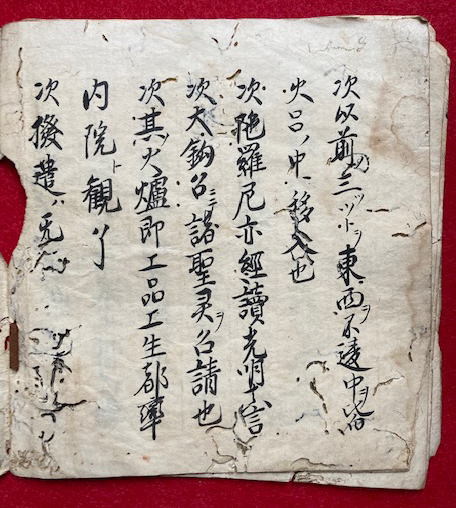 次以前ノ三ツトヲ東西ヲ不違中ヲ皆
火呂ノ中ヘ移入也
次陀羅尼亦經讀光明真言
次大鈎召ニテ諸聖灵ヲ召請也
次其ノ火爐即上品上生都率
内院ト観
次撥遣ハ无